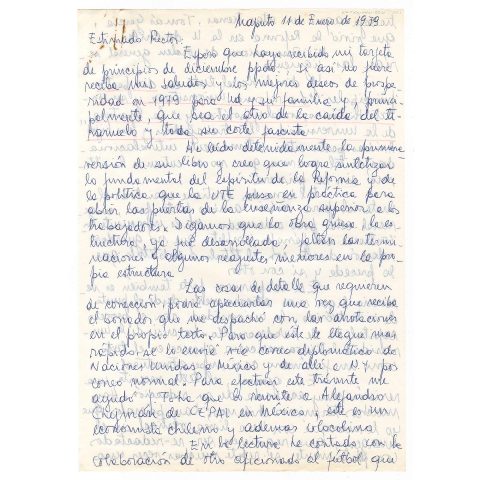 Maputo 11 de Enero de 1979
Estimado Rector:
Espero que haya recibido mi tarjeta
de principios de diciembre ppdo. Si así no fuere
reciba mis saludos y los mejores deseos de prospe-
ridad en 1979 para Ud y su familia y, princi-
palmente, que sea el año de la caída del ti-
ranuelo y toda su corte fascista
He leído detenidamente la primera
versión de su libro y creo que logra sintetizar
lo fundamental del espíritu de la Reforma y de
la política que la UTE puso en práctica para
abrir las puertas de la enseñanza superior a los
trabajadores. Digamos que la obra gruesa, la es-
tructura, ya fue desarrollada, faltan las termi-
naciones y algunos reajustes menores en la pro-
pia estructura.
Las cosas de detalle que requieren
de corrección podrá apreciarlas una vez que reciba
el borrador que me despachó con las anotaciones
en el propio texto. Para que este le llegue mas
rápido se lo envié vía correo diplomático de
Naciones Unidas a México y de allí a NY por
correo normal. Para efectuar este trámite me
ayudó que lo remite a Alejandro
de CEPAL en México, este es un
economista chileno y ademas colocolino.
En la lectura he contado con la
colaboración de otro aficionado al fútbol que